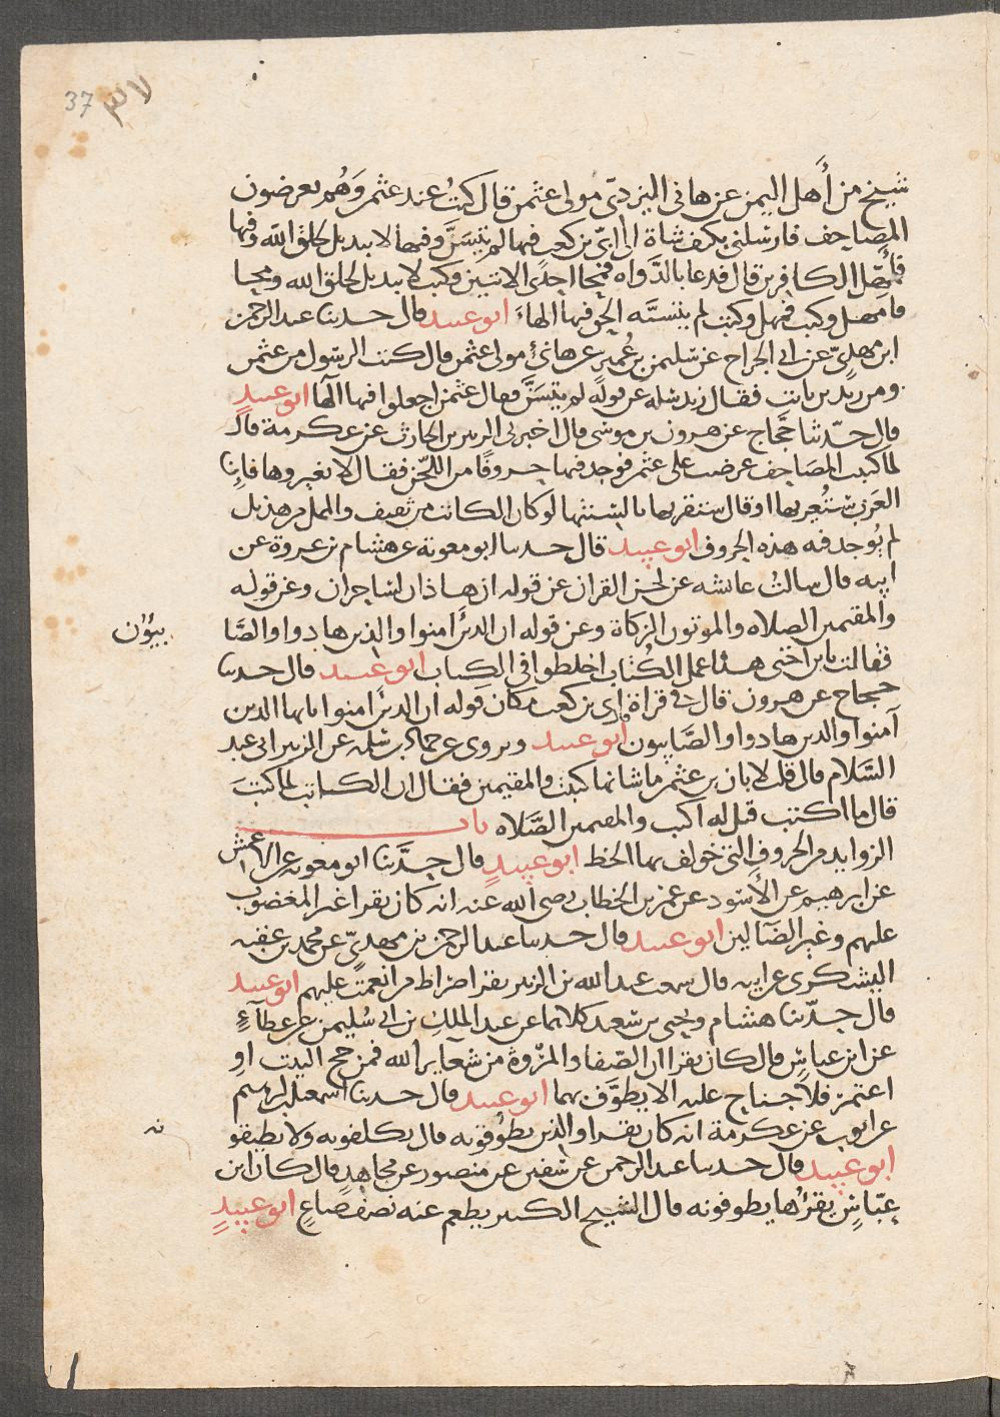 37 ٣٧
شيخ من أهل اليمن عن هانى البربرى مولى عثمن قال كنت عند عثمن وهم يعرضون
المصاحف فارسلنى بكتف شاة الى ابى بن كعب فيها لم يتسن وفيها لا تبديل لخلق الله وفيها
فأمهل الكافرين قال فدعا بالدواه فمحا احدى الاثنين وكتب لا تبديل لخلق الله ومحا
فامهل وكتب فمهل وكتب لم يتسنه الحق فيها الهاء ابو عبيد قال حدثنا عبد الرحمن
ابن مهدى عن ابى الجراح عن سليمن بن عمير عن هانئ مولى عثمن قال كنت الرسول بين عثمن
وبين زيد بن ثابت فقال زيد سله عن قوله لم يتسن فقال عثمن اجعلوا فيها الها ابو عبيد
قال حدثنا حجاج عن هرون بن موسى قال اخبرنى الزبير بن الحارث عن عكرمة قال
لما كتبت المصاحف عرضت على عثمن فوجد فيها حروفا من اللحن فقال لا تغيروها فان
العرب ستعربها او قال ستقربها بالسنتها لو كان الكاتب من ثقيف والممل من هذيل
لم يوجد فيه هذه الحروف ابو عبيد قال حدثنا ابو معوية عن هشام بن عروة عن
ابيه قال سالت عائشه عن لحن القران عن قوله ان هاذان لساحران وعن قوله
والمقيمين الصلاه والموتون الزكاة وعن قوله ان الذين امنوا والذين هادوا والصا
بيؤن
فقالت يا بن اختى هذا عمل الكتاب اخطوا فى الكتاب ابو عبيد قال حدثنا
حجاج عن هرون قال فى قراة ابى بن كعب مكان قوله ان الذين امنوا يايها الذين
آمنوا والذين هادوا والصابيون ابو عبيد ويروى عن حماد بن سلمه عن الزبير ابى عبد
السلام قال قلت لابان بن عثمن ما شانها كتبت والمقيمين فقال ان الكاتب لما كتب
قال ما اكتب قيل له اكتب والمقيمين الصلاه باب
الزوايد من الحروف التى خولف بها الخط ابو عبيد قال حدثنا ابو معوية عن الاعمش
عن ابرهيم عن الأسود عن عمر بن الخطاب رضى الله عنه انه كان يقرا غير المغضوب
عليهم وغير الضالين ابو عبيد قال حدثنا عبد الرحمن بن مهدى عن محمد بن عقبه
اليشكرى عن ابيه قال سمعت عبد الله بن الزبير يقرا صراط من انعمت عليهم ابو عبيد
قال حدثنا هشام ويحيى بن سعيد كلاهما عن عبد الملك بن ابى سليمن عن عطآء
عن ابن عباس قال كان يقرا ان الصفا والمروة من شعاير الله فمن حج البيت او
اعتمر فلا جناح عليه الا يطوف بهما ابو عبيد قال حدثنا اسمعيل بن ابرهيم
عن ايوب عن عكرمة انه كان يقرا والذين يطوقونه قال يكلفونه ولا يطيقو
نه
ابو عبيد قال حدثنا عبد الرحمن عن سفين عن منصور عن مجاهد قال كان ابن
عباس يقرؤها يطوقونه قال الشيخ الكبير يطعم عنه نصف صاع ابو عبيد